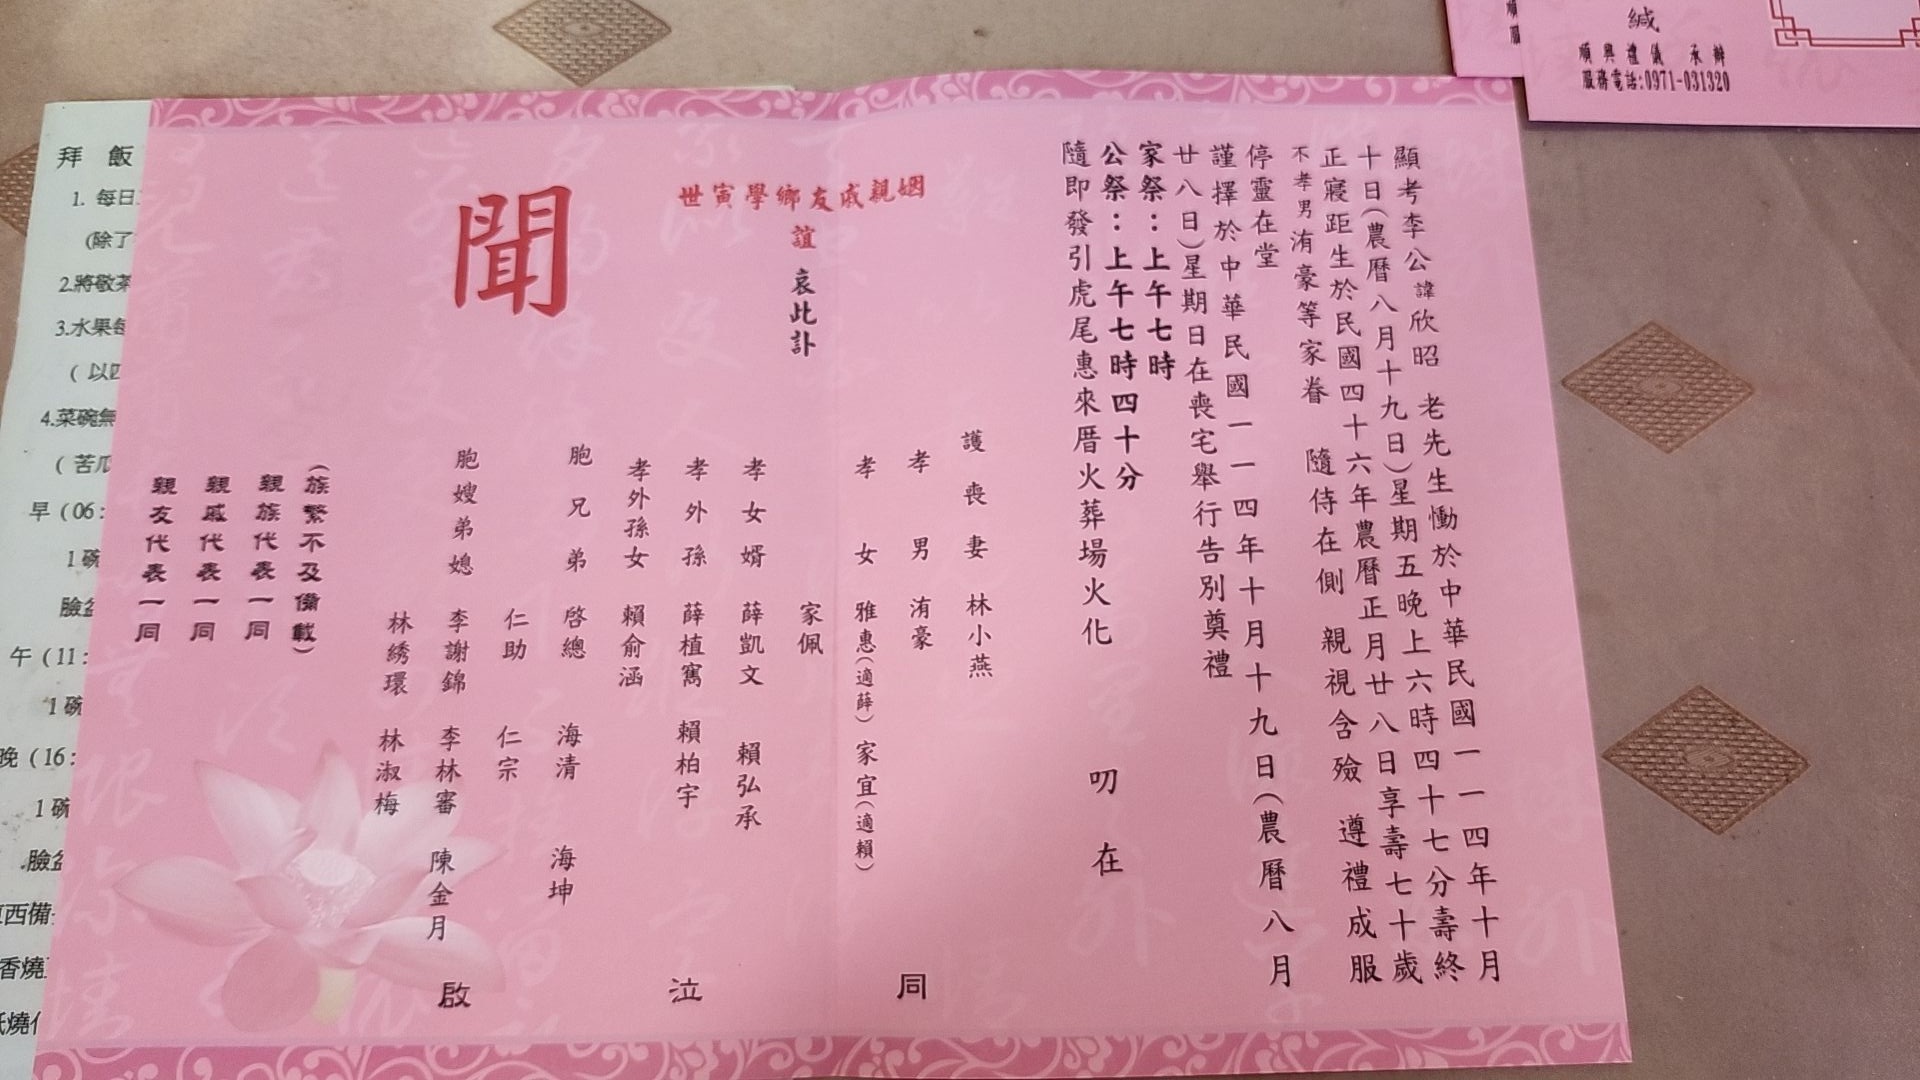 顯考李公諱欣昭 老先生慟於中華民國一一四年十月
十日(農曆八月十九日)星期五晚上六時四十七分壽終
正寢距生於民國四十六年農曆正月廿八日享壽七十歲
不孝男洧豪等家眷 隨侍在側 親視含殮 遵禮成服
停靈在堂
謹擇於中華民國一一四年十月十九日(農曆八月
廿八日)星期日在喪宅舉行告別奠禮
家祭:上午七時
公祭:上午七時四十分
隨即發引虎尾惠來厝火葬場火化 叨 在
姻親戚友鄉學寅世
誼 哀此訃
聞
護喪妻 林小燕
孝男 洧豪
孝女 雅惠(適薛) 家宜(適賴)
家佩
孝女婿 薛凱文 賴弘承
孝外孫 薛植寯 賴柏宇
孝外孫女 賴俞涵
胞兄弟 啓總 海清 海坤
仁助 仁宗
胞嫂弟媳 李謝錦 李林審 陳金月
林綉環 林淑梅
同 泣 啟
(族繁不及備載)
親族代表一同
親戚代表一同
親友代表一同
拜 飯
1. 每日
(除了
2.將敬茶
3.水果每
( 以四
4.菜碗無
( 苦瓜
早 (06:
1 碗
臉盆
午 (11:
1 碗
晚 (16:
1 碗
臉盆
西備
香燒
燒
緘
順興禮儀 承辦
服務電話:0971-031320
順
服